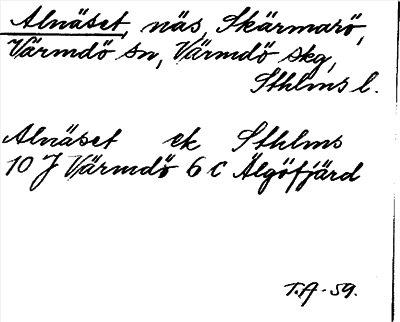 Alnäset, näs, Skärmarö,
Värmdö sn, Värmdö skg,
Sthlms l.
Alnäset ek Sthlms
10 J Värmdö 6 c Älgöfjärd
T.A. -59.